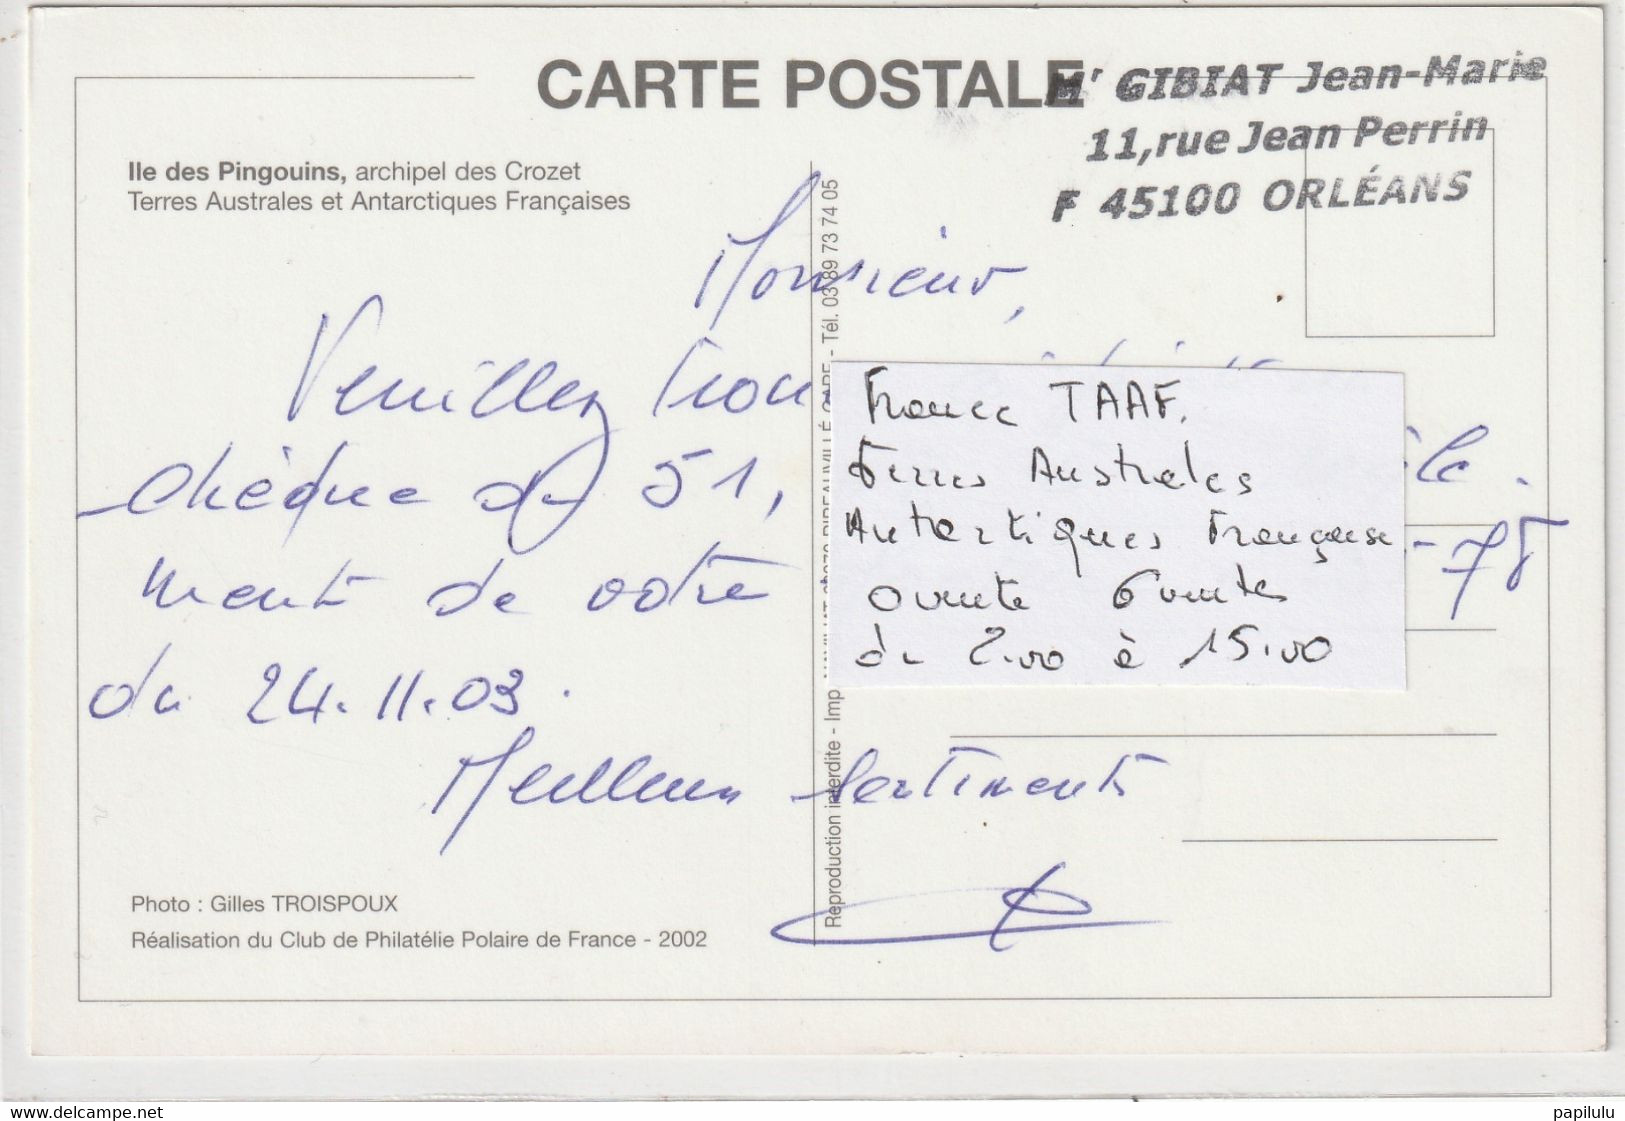 CARTE POSTALE
Mr GIBIAT Jean-Marie
11, rue Jean Perrin
F 45100 ORLÉANS
Ile des Pingouins, archipel des Crozet
Terres Australes et Antarctiques Françaises
Monsieur,
Veuillez trou
chèque de 51,
ment de votre
du 24.11.03.
Meilleurs sentiments
France TAAF.
Terres Australes
Antarctiques Française
à 15.00
Reproduction interdite - Imp
- Tél. 03 89 73 74 05
Photo : Gilles TROISPOUX
Réalisation du Club de Philatélie Polaire de France - 2002
www.delcampe.net
papilulu